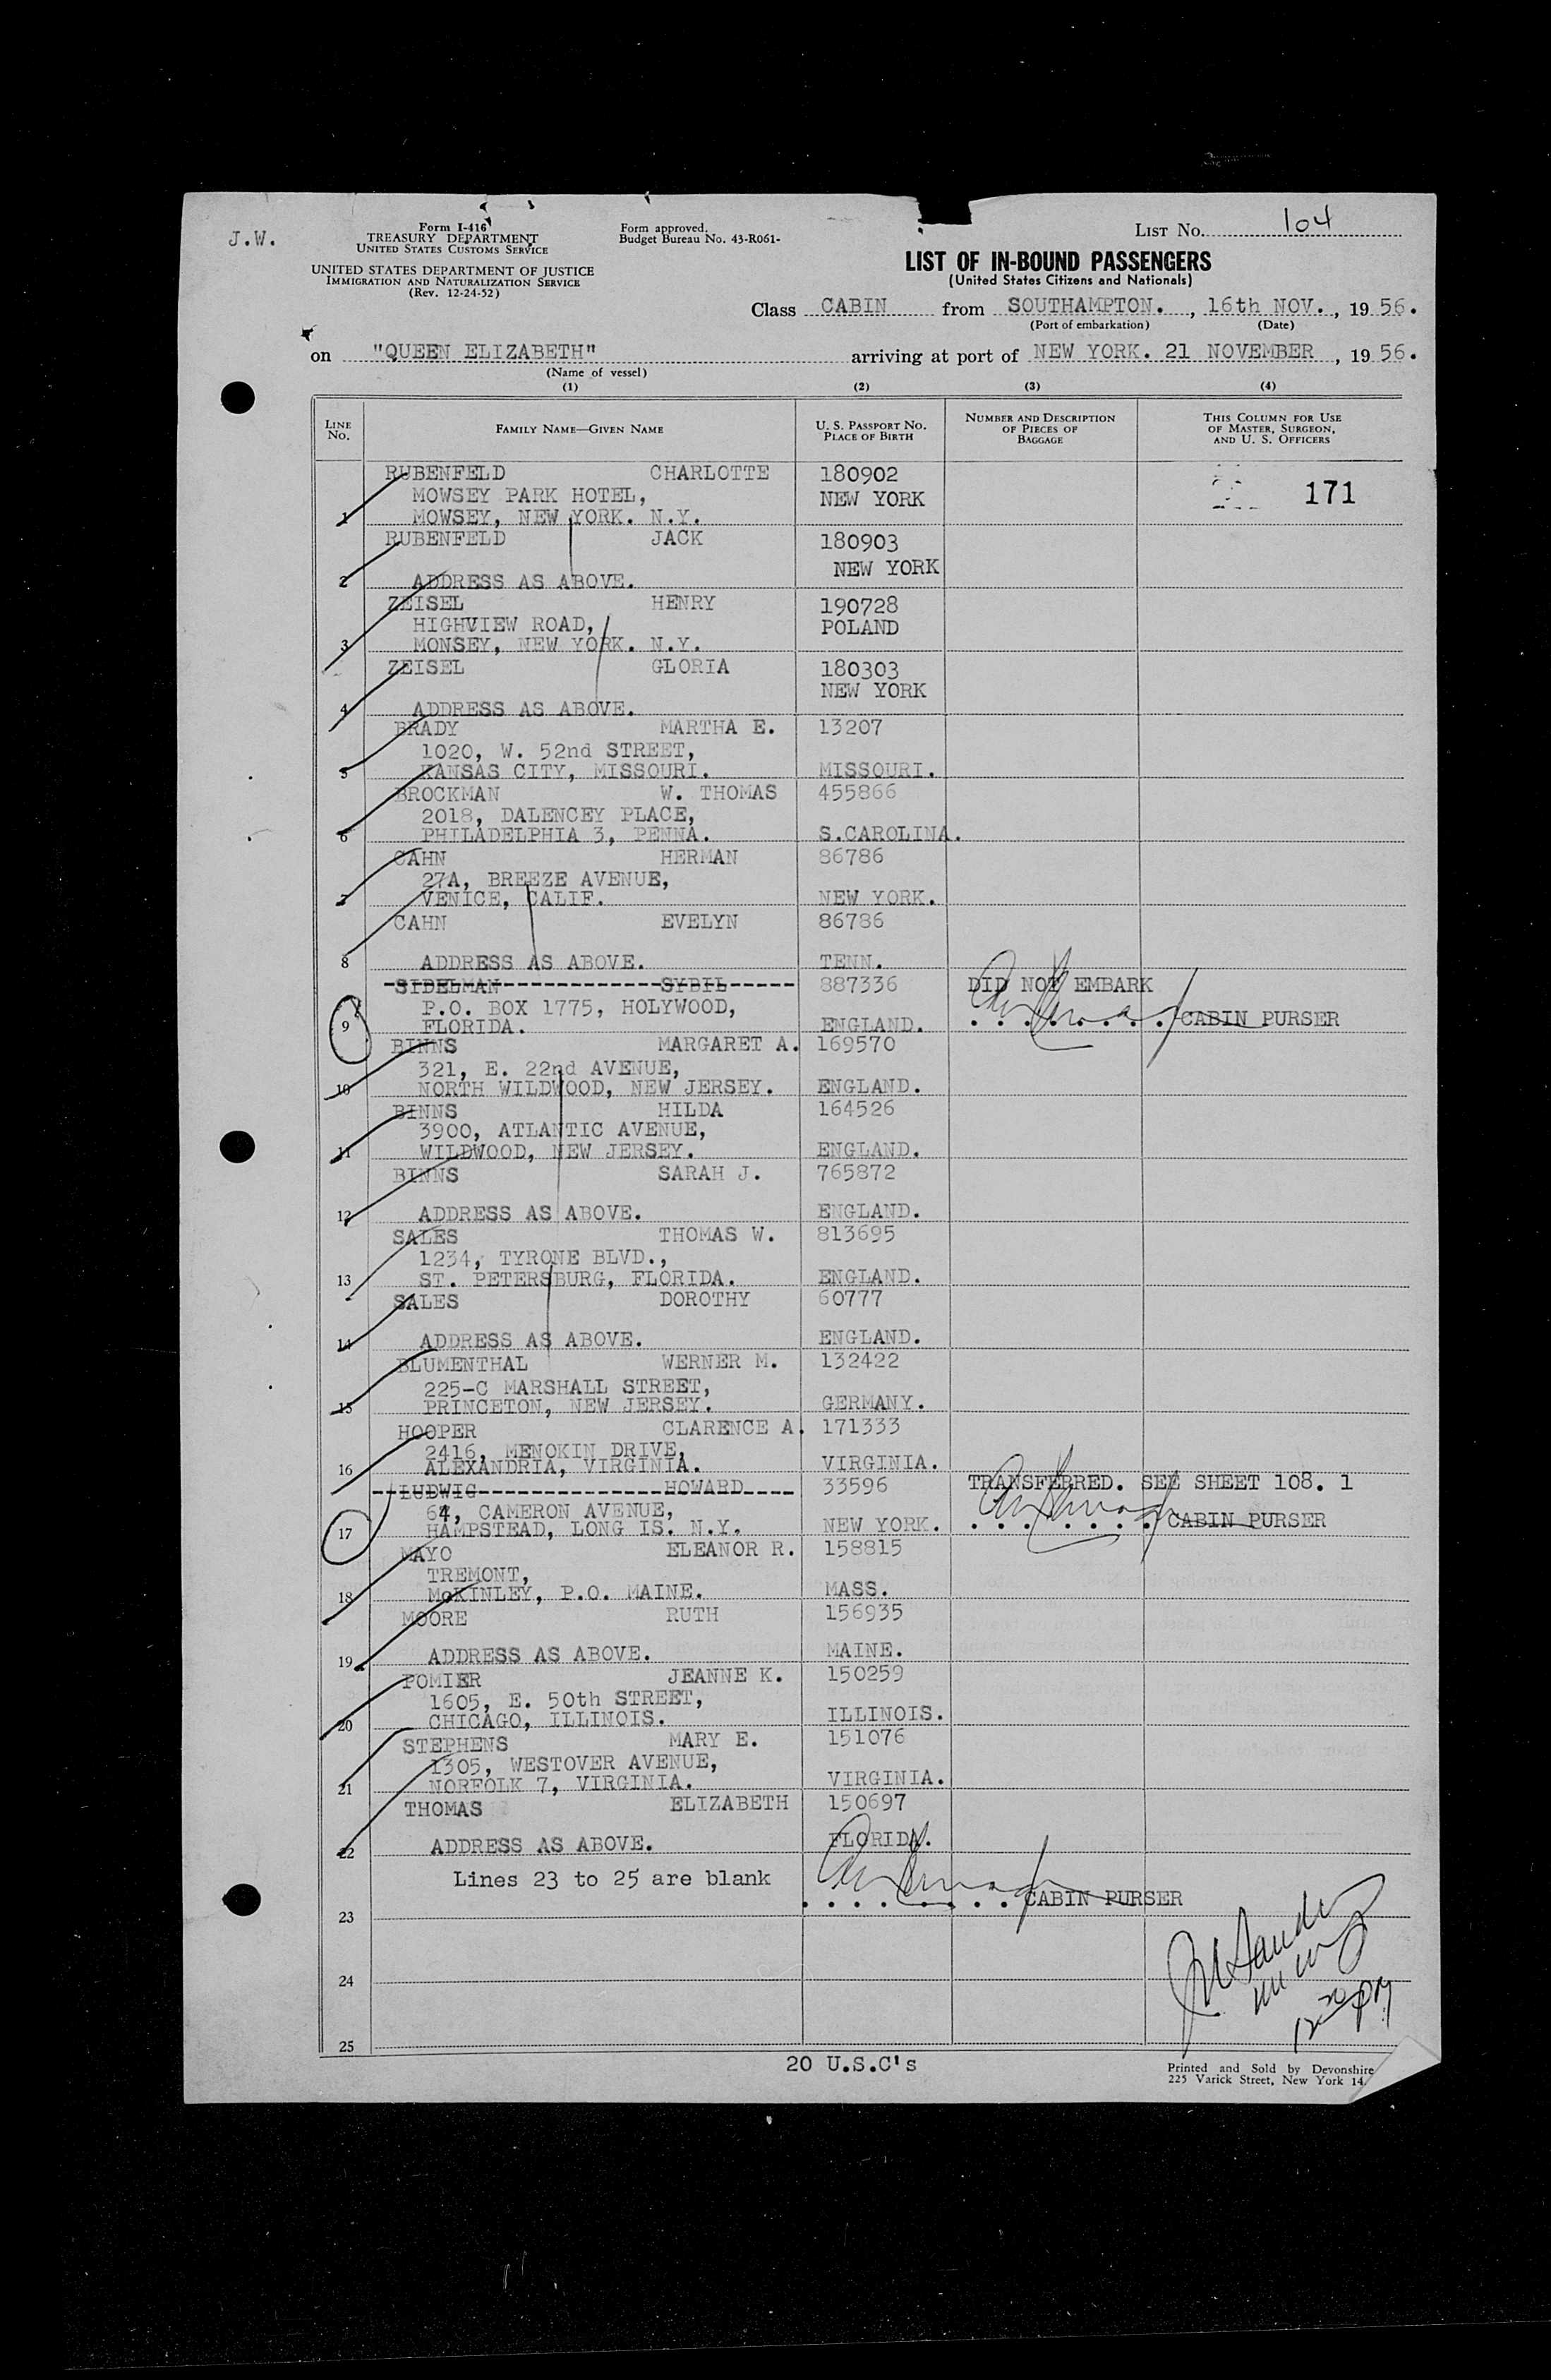 J.W.
Form I-416
TREASURY DEPARTMENT
UNITED STATES CUSTOMS SERVICE
UNITED STATES DEPARTMENT OF JUSTICE
IMMIGRATION AND NATURALIZATION SERVICE
(Rev. 12-24-52)
Form approved.
Budget Bureau No. 43-R061-
LIST NO. 104
LIST OF IN-BOUND PASSENGERS
(United States Citizens and Nationals)
Class CABIN from SOUTHAMPTON. , 16th NOV. , 19 56.
(Port of embarkation) (Date)
on "QUEEN ELIZABETH" arriving at port of NEW YORK. 21 NOVEMBER , 19 56.
(Name of vessel)
(1) (2) (3) (4)
LINE NO. FAMILY NAME—GIVEN NAME U. S. PASSPORT NO. PLACE OF BIRTH NUMBER AND DESCRIPTION OF PIECES OF BAGGAGE THIS COLUMN FOR USE OF MASTER, SURGEON, AND U. S. OFFICERS
RUBENFELD CHARLOTTE 180902
MOWSEY PARK HOTEL, NEW YORK 171
1 MOWSEY, NEW YORK. N.Y.
RUBENFELD JACK 180903
NEW YORK
2 ADDRESS AS ABOVE.
ZEISEL HENRY 190728
HIGHVIEW ROAD, POLAND
3 MONSEY, NEW YORK. N.Y.
ZEISEL GLORIA 180303
NEW YORK
4 ADDRESS AS ABOVE.
BRADY MARTHA E. 13207
1020, W. 52nd STREET,
5 KANSAS CITY, MISSOURI. MISSOURI.
BROCKMAN W. THOMAS 455866
2018, DALENCEY PLACE,
6 PHILADELPHIA 3, PENNA. S.CAROLINA.
CAHN HERMAN 86786
27A, BREEZE AVENUE,
7 VENICE, CALIF. NEW YORK.
CAHN EVELYN 86786
8 ADDRESS AS ABOVE. TENN.
SIDELMAN SYBIL 887336 DID NOT EMBARK
P.O. BOX 1775, HOLYWOOD,
9 FLORIDA. ENGLAND. CABIN PURSER
BINNS MARGARET A. 169570
321, E. 22nd AVENUE,
10 NORTH WILDWOOD, NEW JERSEY. ENGLAND.
BINNS HILDA 164526
3900, ATLANTIC AVENUE,
11 WILDWOOD, NEW JERSEY. ENGLAND.
BINNS SARAH J. 765872
12 ADDRESS AS ABOVE. ENGLAND.
SALES THOMAS W. 813695
1234, TYRONE BLVD.,
13 ST. PETERSBURG, FLORIDA. ENGLAND.
SALES DOROTHY 60777
14 ADDRESS AS ABOVE. ENGLAND.
BLUMENTHAL WERNER M. 132422
225-C MARSHALL STREET,
15 PRINCETON, NEW JERSEY. GERMANY.
HOOPER CLARENCE A. 171333
2416, MENOKIN DRIVE,
16 ALEXANDRIA, VIRGINIA. VIRGINIA.
LUDWIG HOWARD 33596 TRANSFERRED. SEE SHEET 108. 1
64, CAMERON AVENUE,
17 HAMPSTEAD, LONG IS. N.Y. NEW YORK. CABIN PURSER
MAYO ELEANOR R. 158815
TREMONT,
18 McKINLEY, P.O. MAINE. MASS.
MOORE RUTH 156935
19 ADDRESS AS ABOVE. MAINE.
POMIER JEANNE K. 150259
1605, E. 50th STREET,
20 CHICAGO, ILLINOIS. ILLINOIS.
STEPHENS MARY E. 151076
1305, WESTOVER AVENUE,
21 NORFOLK 7, VIRGINIA. VIRGINIA.
THOMAS ELIZABETH 150697
22 ADDRESS AS ABOVE. FLORIDA.
Lines 23 to 25 are blank
CABIN PURSER
23
24
25
20 U.S.C's
Printed and Sold by Devonshire
225 Varick Street, New York 14.